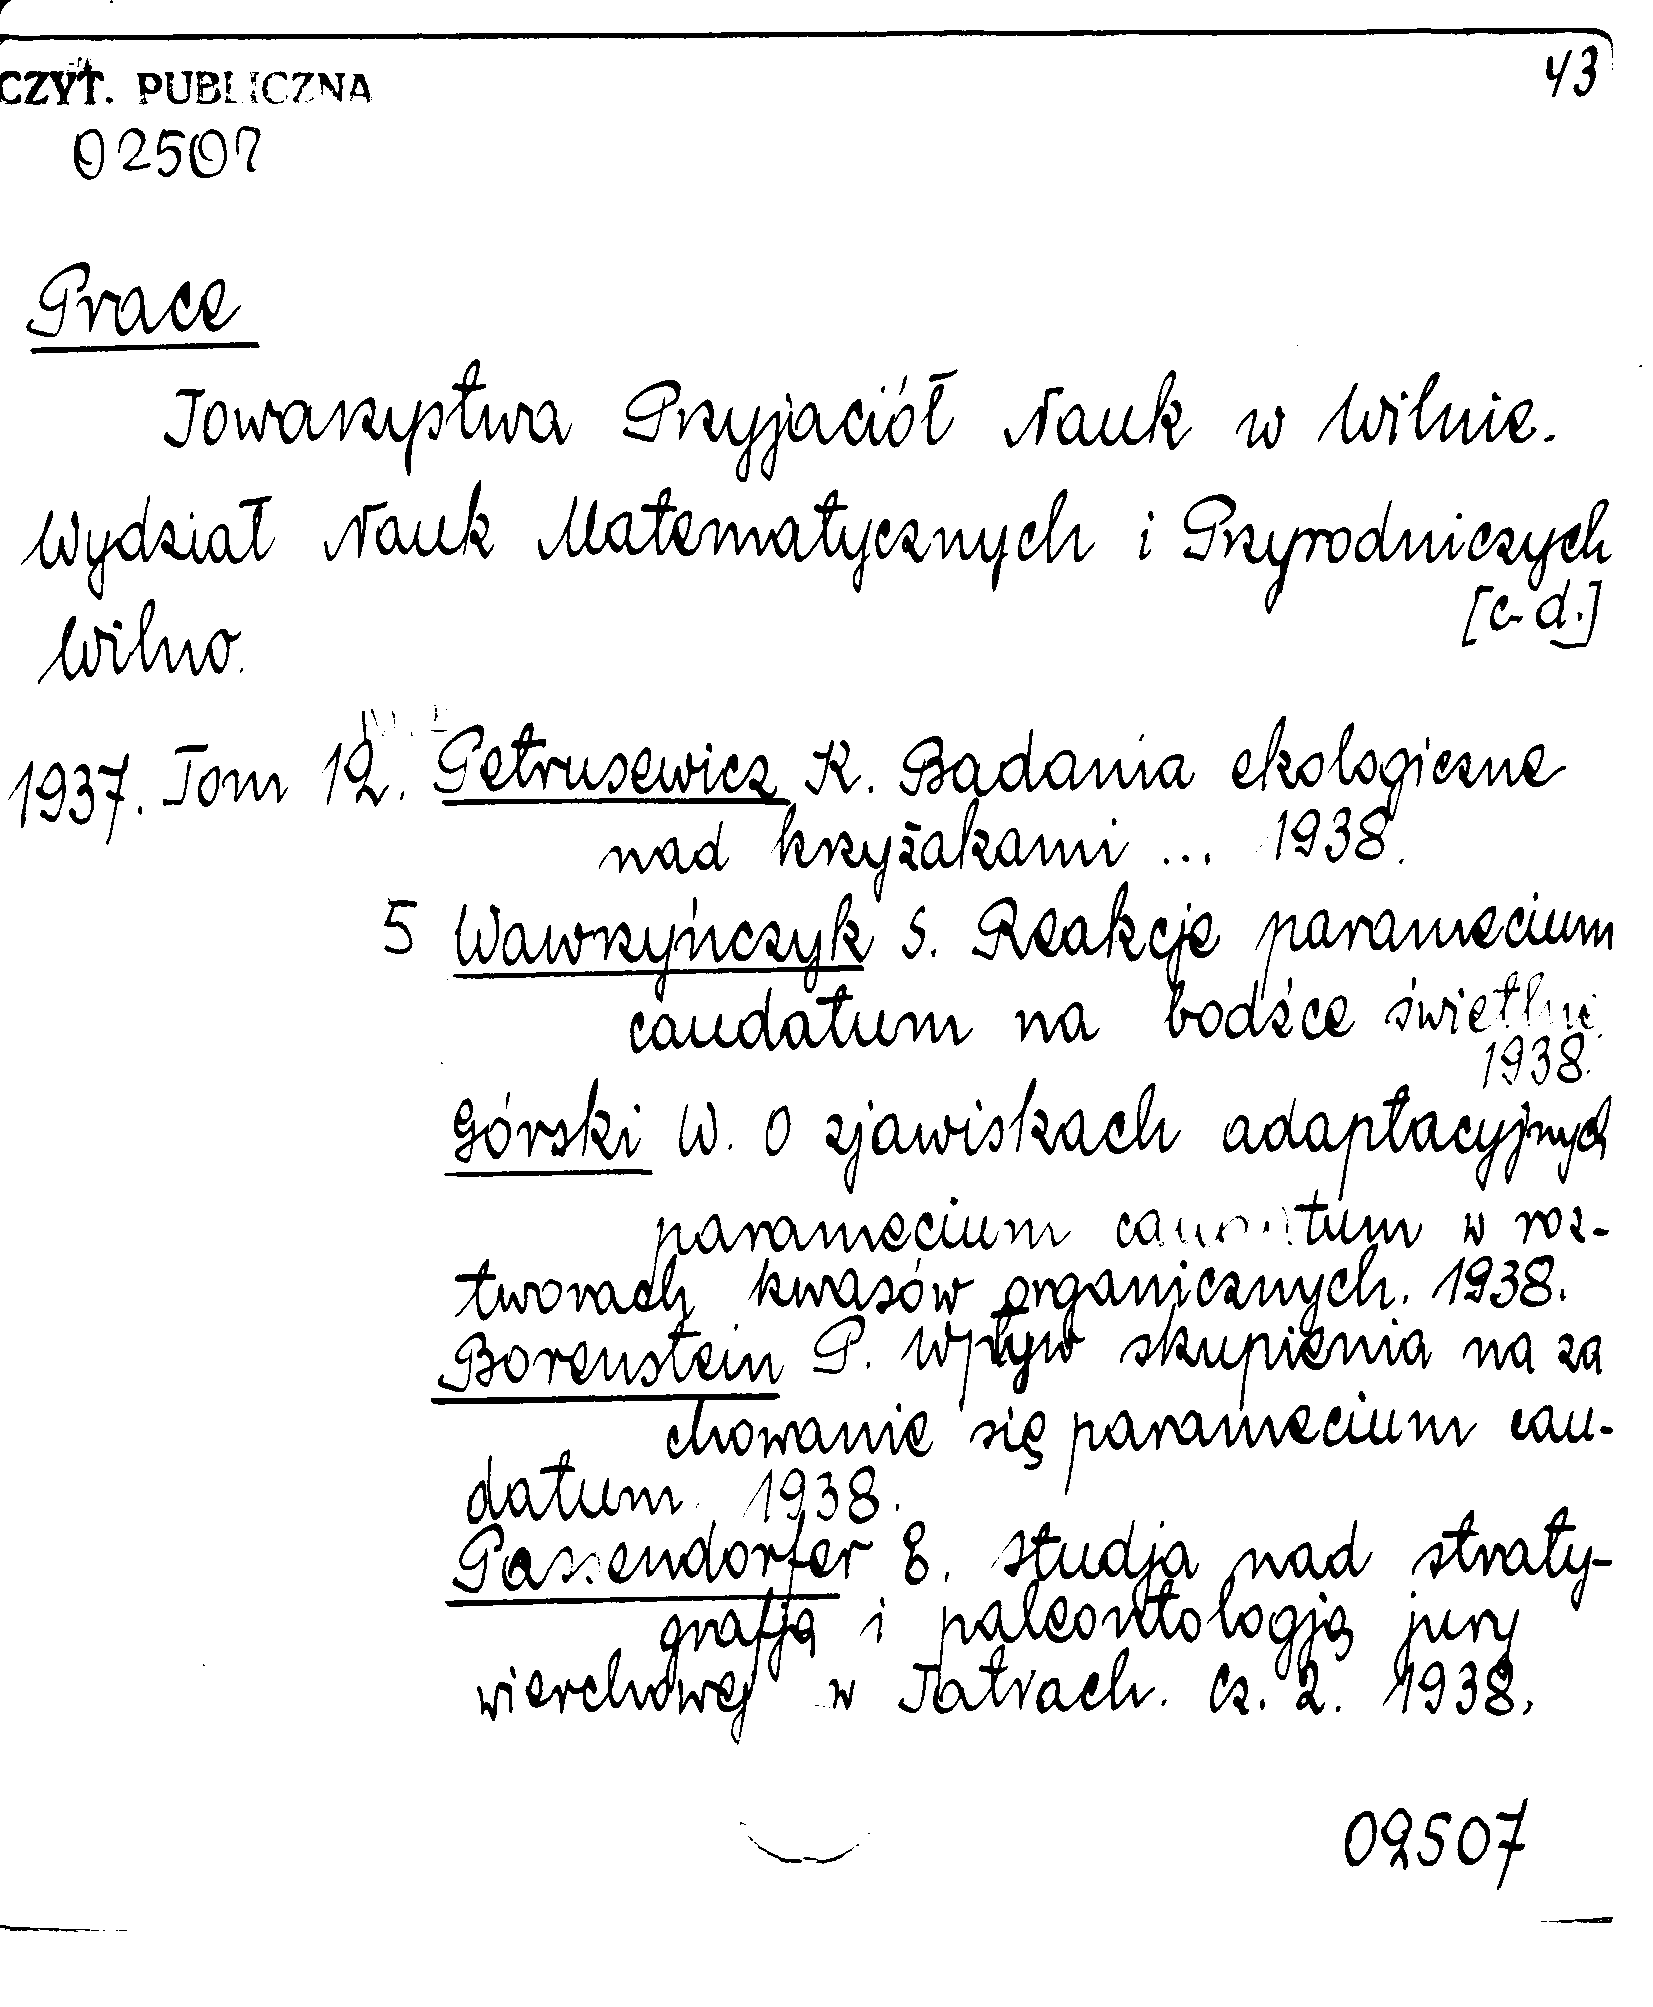 CZYT. PUBLICZNA
43
02507
Prace
Towarzystwa Przyjaciół Nauk w Wilnie.
Wydział Nauk Matematycznych i Przyrodniczych
[c. d.]
Wilno.
1937. Tom 12. Petrusewicz K. Badania ekologiczne
nad krzyżakami ... 1938.
5 Wawrzyńczyk S. Reakcje paramecium
caudatum na bodźce świetlne.
1938.
Górski W. O zjawiskach adaptacyjnych
paramecium caudatum w roz-
tworach kwasów organicznych. 1938.
Borenstein P. Wpływ skupienia na za
chowanie się paramecium cau-
datum. 1938.
Passendorfer E. Studja nad straty-
grafją i paleontologją jury
wierchowej w Tatrach. Cz. 2. 1938.
02507